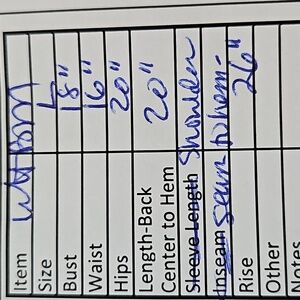 Item
Size
Bust 18"
Waist 16"
Hips 20"
Length-Back
Center to Hem 20"
Sleeve Length Shoulder
Inseam seam to hem-
Rise 26"
Other
Notes